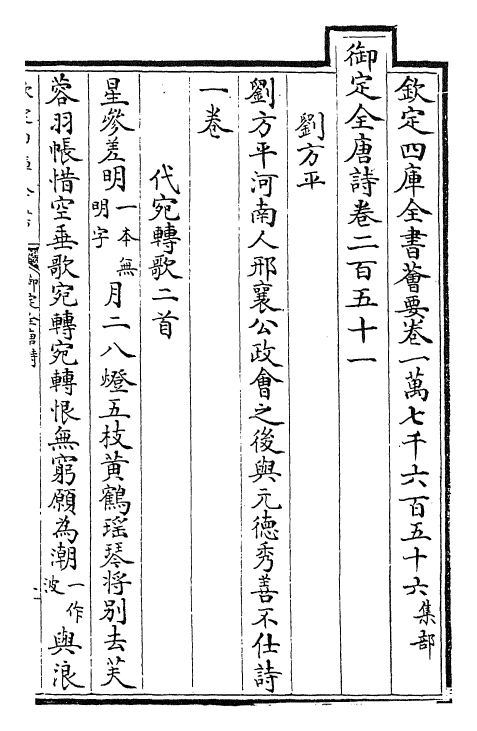 欽定四庫全書薈要卷一萬七千六百五十六集部
御定全唐詩卷二百五十一
劉方平
劉方平河南人邢襄公政會之後與元德秀善不仕詩
一卷
代宛轉歌二首
星參差明一本無明字月二八燈五枝黄鶴瑶琴将别去芙
蓉羽帳惜空垂歌宛轉宛轉恨無窮願為潮一作波與浪
御定全唐詩